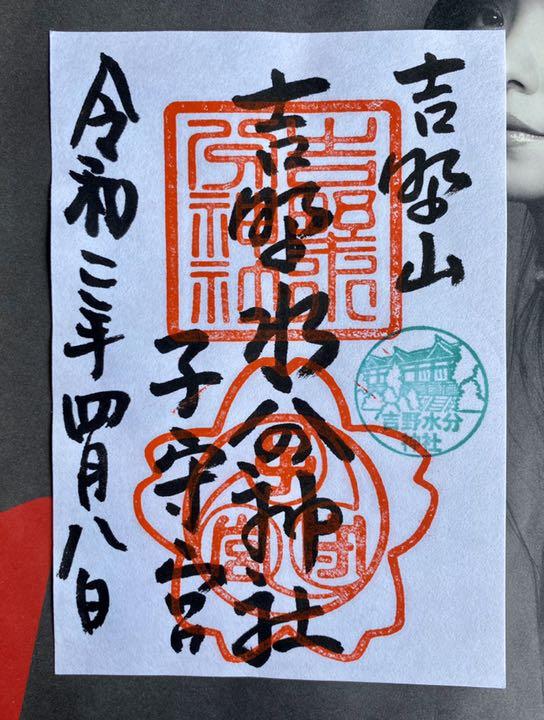 吉野山
吉野水分神社
子守宮
令和三年四月八日
吉野水分神社
吉野水分
神社
子守宮